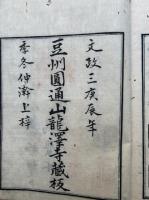 文政三庚辰年
豆州圓通山龍澤寺藏板
季冬仲澣上梓